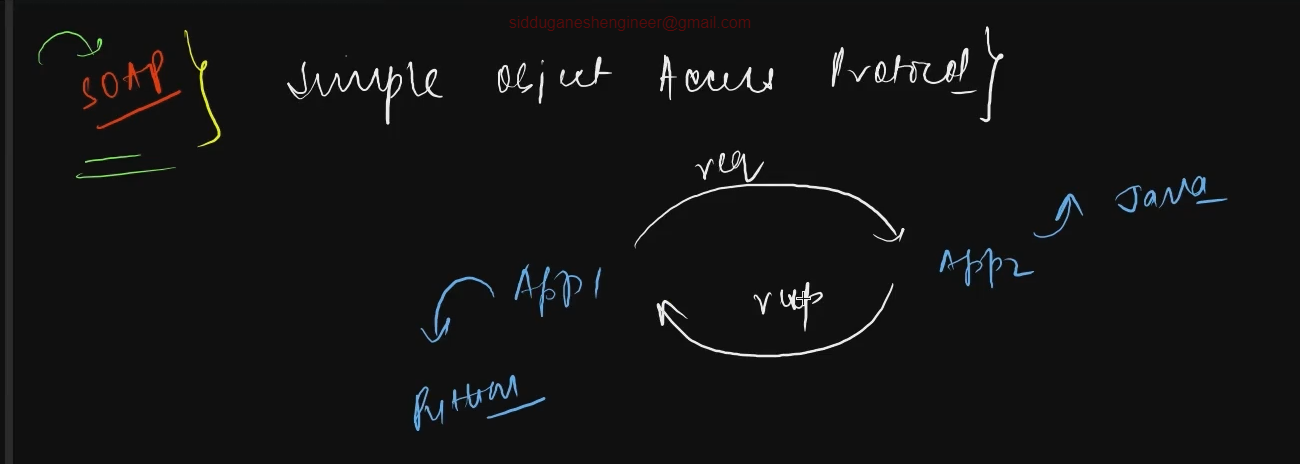 sidduganeshengineer@gmail.com
SOAP } Simple Object Access Protocol }
req
Java
App2
App1
resp
Python